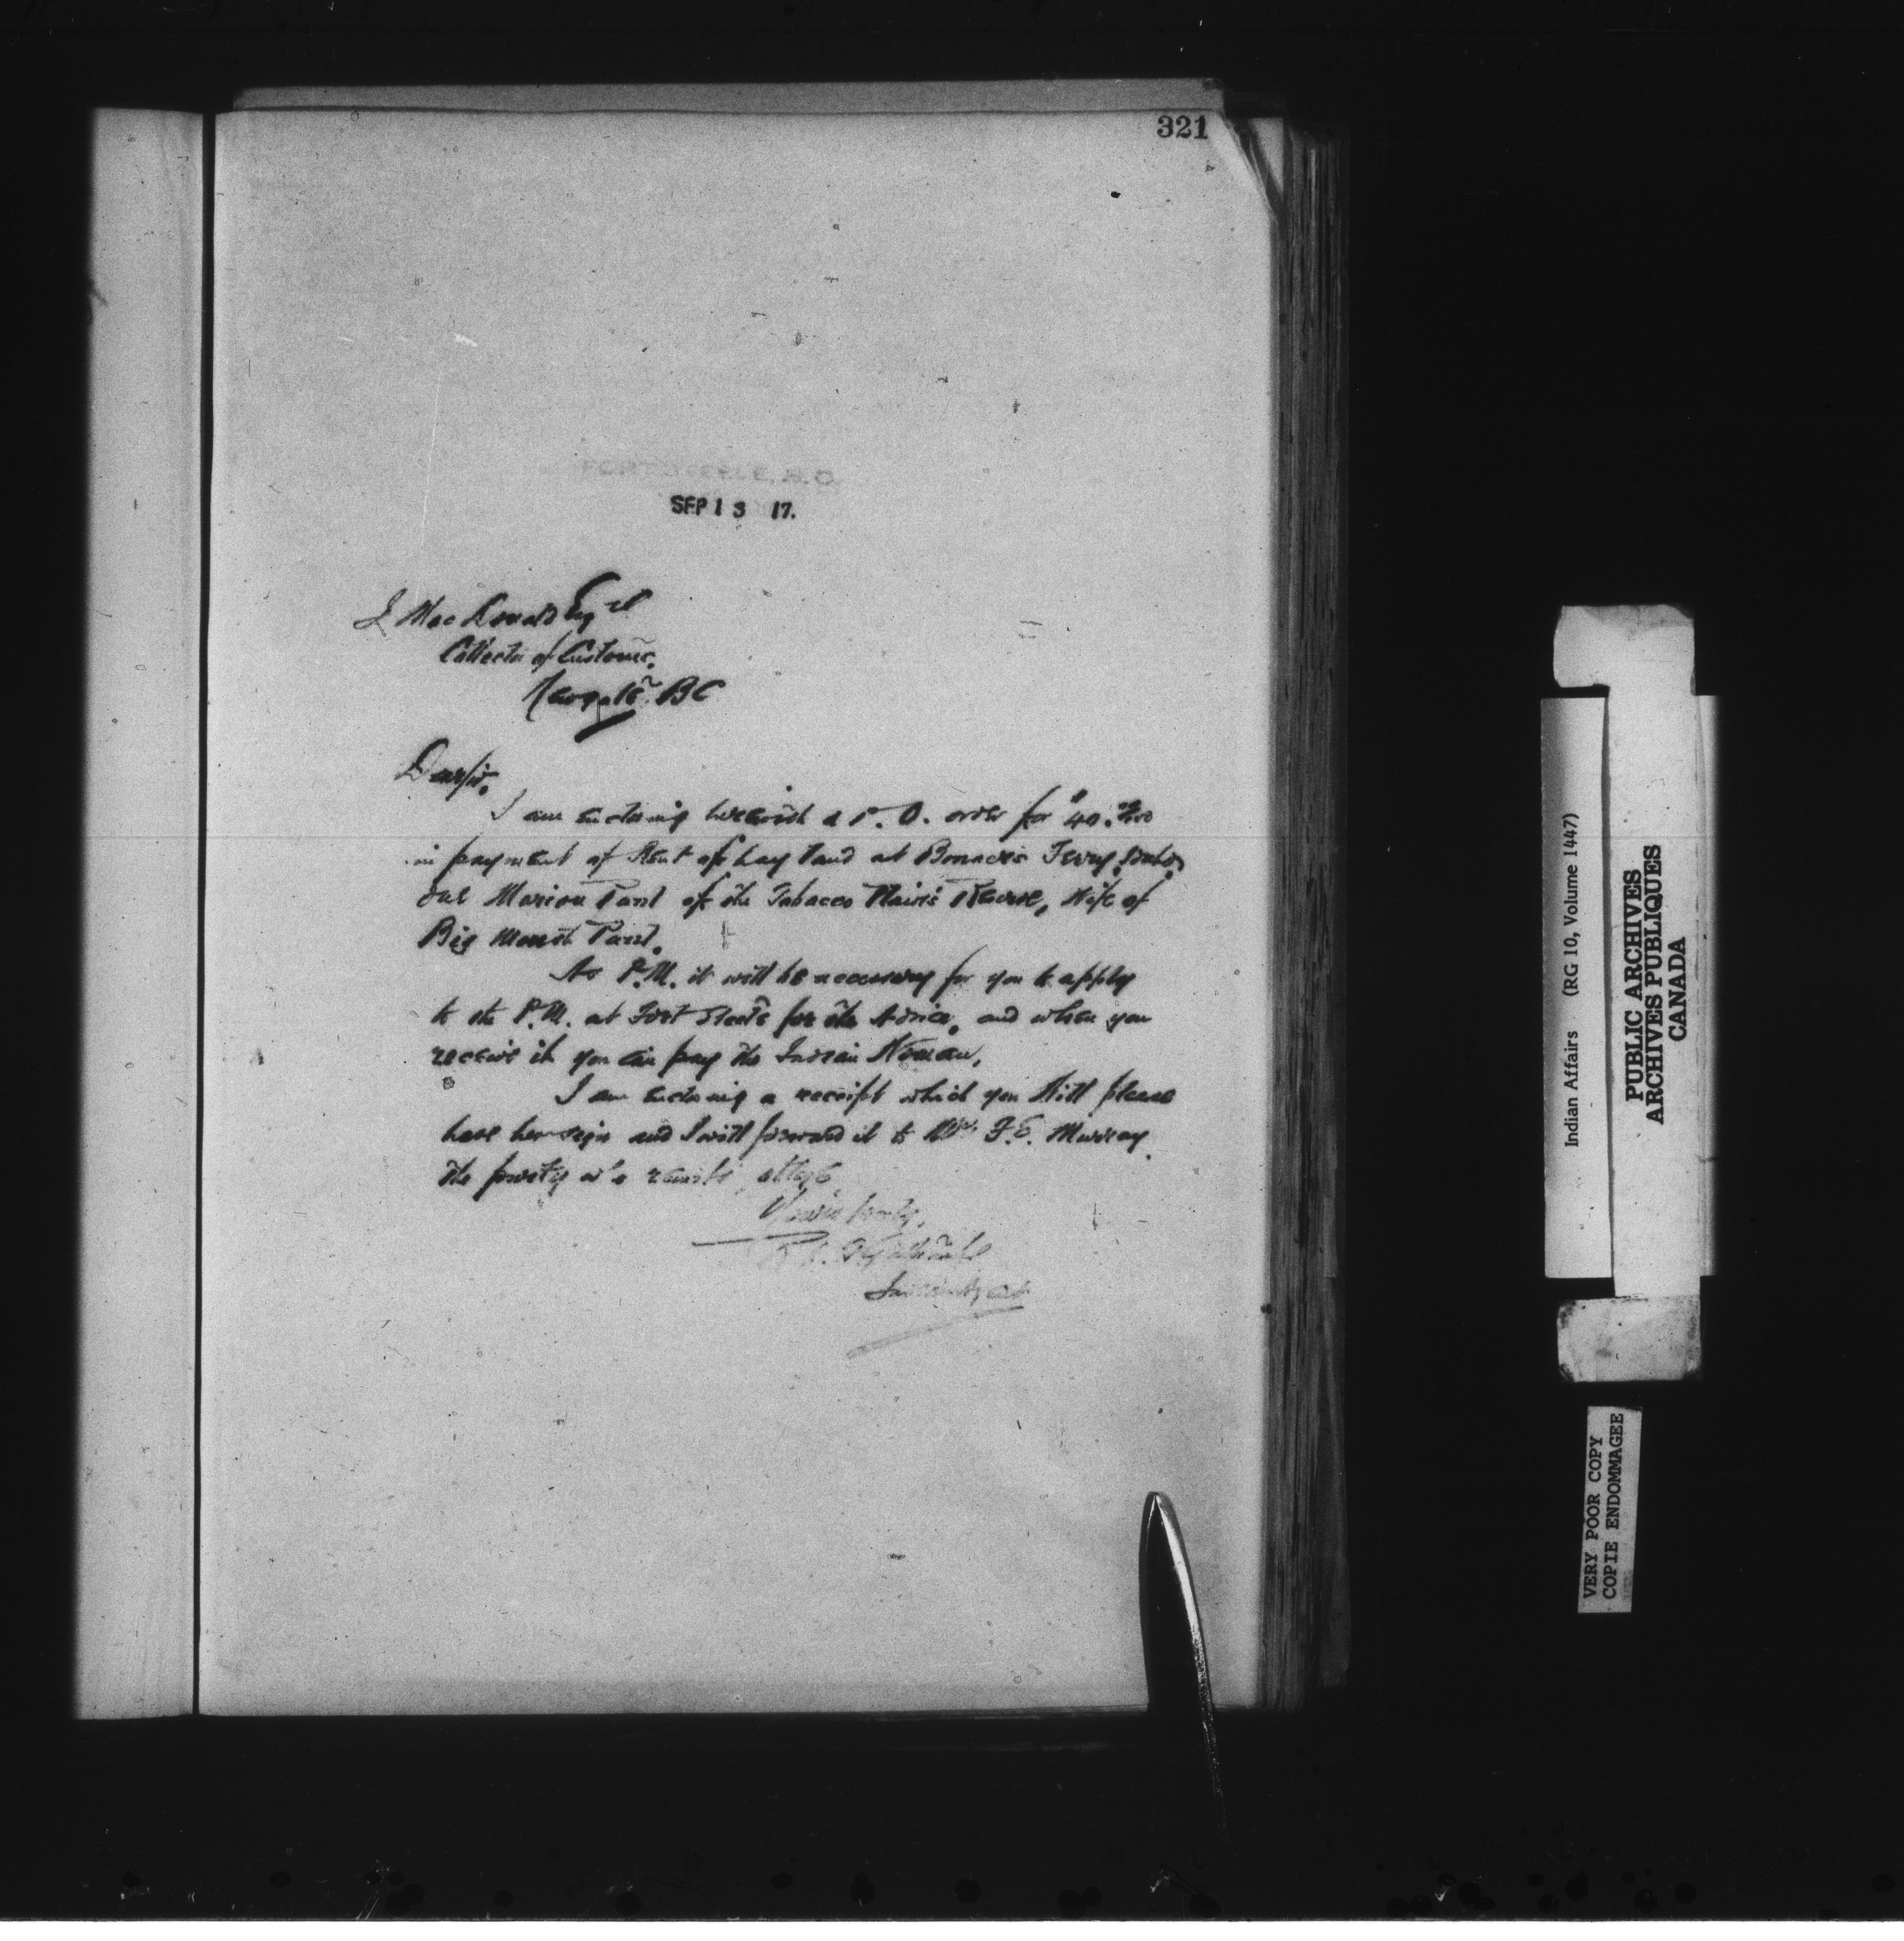 321
FORT STEELE, B.C.
SEP 13 17.
J MacDonald Esqre
Collector of Customs.
Newgate BC
Dear Sir,
I am enclosing herewith a P.O. order for $40.00/100
in payment of Rent of hay land at Bonners Ferry Idaho,
due Marion Paul of the Tobacco Plains Reserve, Wife of
Big Mouth Paul.
As P.M. it will be necessary for you to apply
to the P.M. at Fort Steele for the Advice, and when you
receive it you can pay the Indian Woman,
I am enclosing a receipt which you will please
have her sign and I will forward it to F.E. Murray
the party who
Yours truly,
R. L. T. Galbraith
Indian Agent
Indian Affairs (RG 10, Volume 1447)
PUBLIC ARCHIVES
ARCHIVES PUBLIQUES
CANADA
VERY POOR COPY
COPIE ENDOMMAGEE